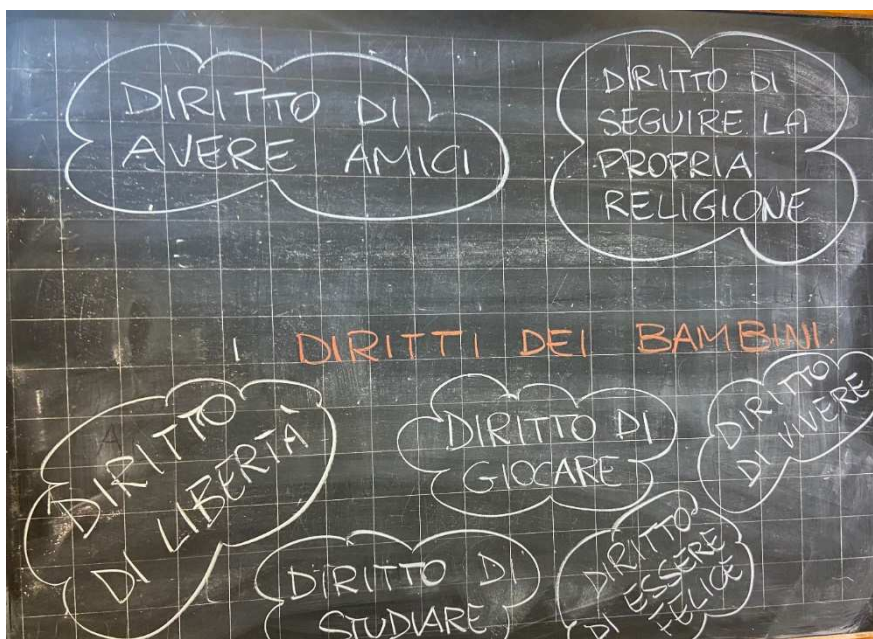 DIRITTO DI
AVERE AMICI
DIRITTO DI
SEGUIRE LA
PROPRIA
RELIGIONE
I DIRITTI DEI BAMBINI
DIRITTO
DI LIBERTÀ
DIRITTO DI
GIOCARE
DIRITTO
DI VIVERE
DIRITTO DI
STUDIARE
DIRITTO
DI ESSERE
FELICE